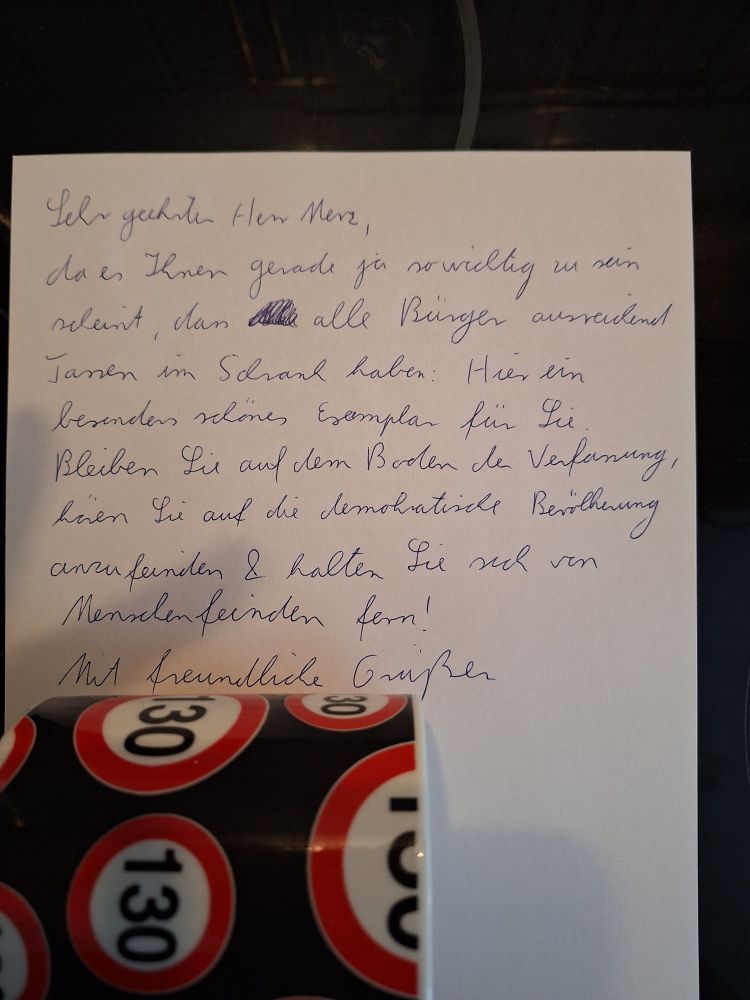 Sehr geehrter Herr Merz,
da es Ihnen gerade ja so wichtig zu sein
scheint, dass alle Bürger ausreichend
Tassen im Schrank haben: Hier ein
besonders schönes Exemplar für Sie.
Bleiben Sie auf dem Boden der Verfassung,
hören Sie auf die demokratische Bevölkerung
anzufeinden & halten Sie sich von
Menschenfeinden fern!
Mit freundliche Grüßen
130
30
130
130